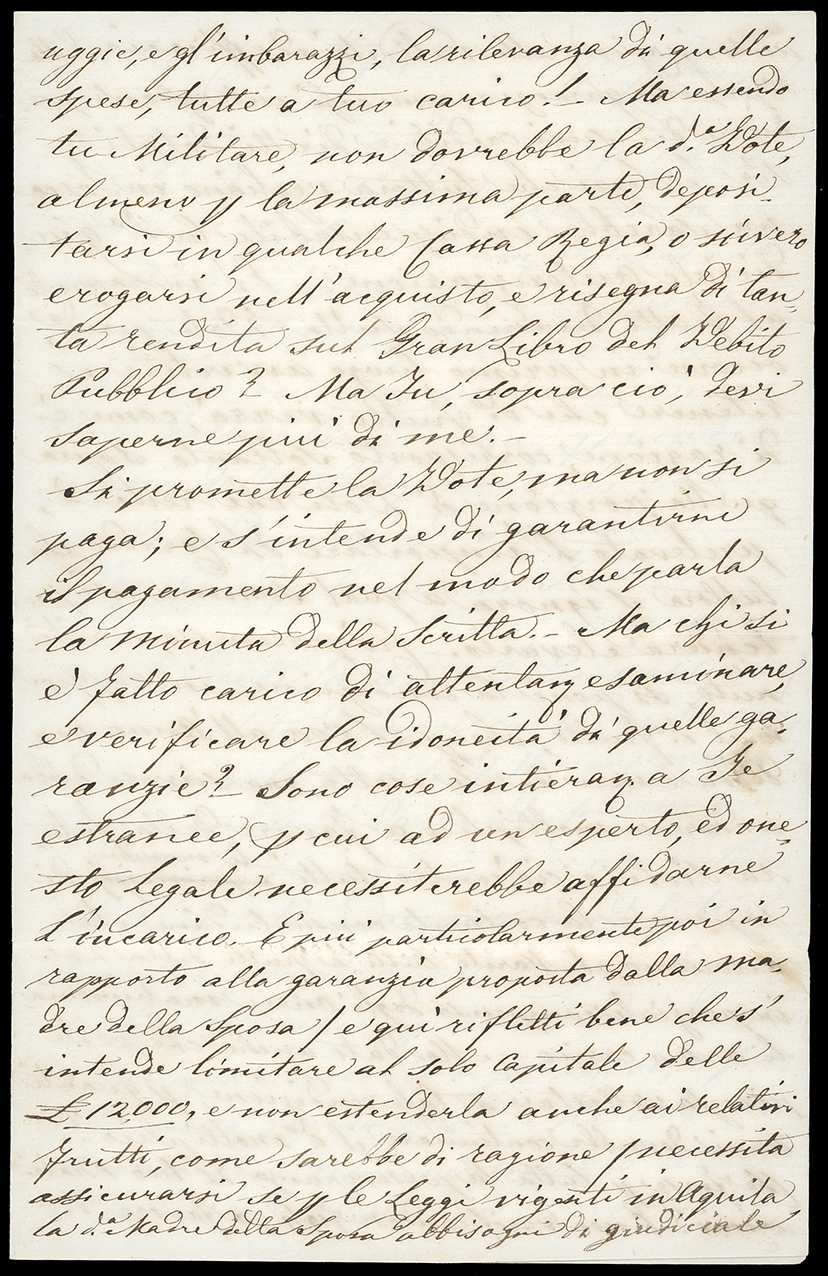 uggie, e gl'imbarazzi, la rilevanza di quelle
spese, tutte a tuo carico! - Ma essendo
tu Militare, non dovrebbe la d.a Dote,
almeno p la massima parte, deposi-
tarsi in qualche Cassa Regia, o sivvero
erogarsi nell'acquisto, e risegna di tan-
ta rendita sul Gran Libro del Debito
Pubblico? Ma Tu, sopra ciò, devi
saperne più di me. -
Si promette la Dote, ma non si
paga; e s'intende di garantirne
il pagamento nel modo che parla
la minuta della Scritta. - Ma chi si
è fatto carico di attentam esaminare,
e verificare la idoneità di quelle ga-
ranzie? - Sono cose intieram a Te
estranee, p cui ad un esperto, ed one-
sto Legale necessiterebbe affidarne
l'incarico. E più particolarmente poi in
rapporto alla garanzia proposta dalla ma-
dre della Sposa / e qui rifletti bene che s'
intende limitare al solo Capitale delle
£ 12,000, e non estenderla anche ai relativi
frutti, come sarebbe di ragione / necessita
assicurarsi se p le Leggi vigenti in Aquila
la d.a Madre della Sposa abbisogni di giudiciale